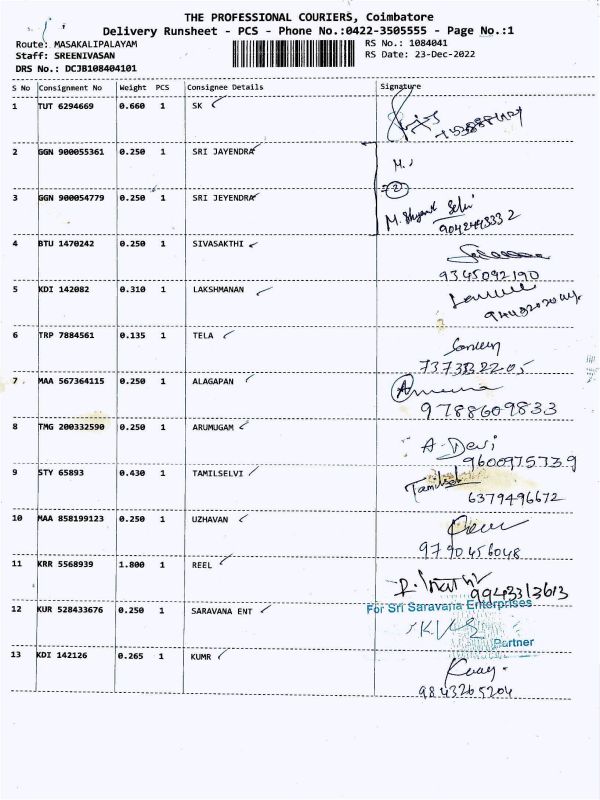 THE PROFESSIONAL COURIERS, Coimbatore
Delivery Runsheet - PCS - Phone No.:0422-3505555 - Page No.:1
Route: MASAKALIPALAYAM
RS No.: 1084041
Staff: SREENIVASAN
RS Date: 23-Dec-2022
DRS No.: DCJB108404101
S No Consignment No Weight PCS Consignee Details Signature
1 TUT 6294669 0.660 1 SK
2 GGN 900055361 0.250 1 SRI JAYENDRA M.
2
3 GGN 900054779 0.250 1 SRI JEYENDRA
4 BTU 1470242 0.250 1 SIVASAKTHI
9345092190
5 KDI 142082 0.310 1 LAKSHMANAN
6 TRP 7884561 0.135 1 TELA
7 MAA 567364115 0.250 1 ALAGAPAN
9788609833
8 TMG 200332590 0.250 1 ARUMUGAM A. Devi
9600975739
9 STY 65893 0.430 1 TAMILSELVI Tamilsel
6379496672
10 MAA 858199123 0.250 1 UZHAVAN
9790456048
11 KRR 5568939 1.800 1 REEL
9943313613
12 KUR 528433676 0.250 1 SARAVANA ENT For Sri Saravana Enterprises
Partner
13 KDI 142126 0.265 1 KUMR
9843265204